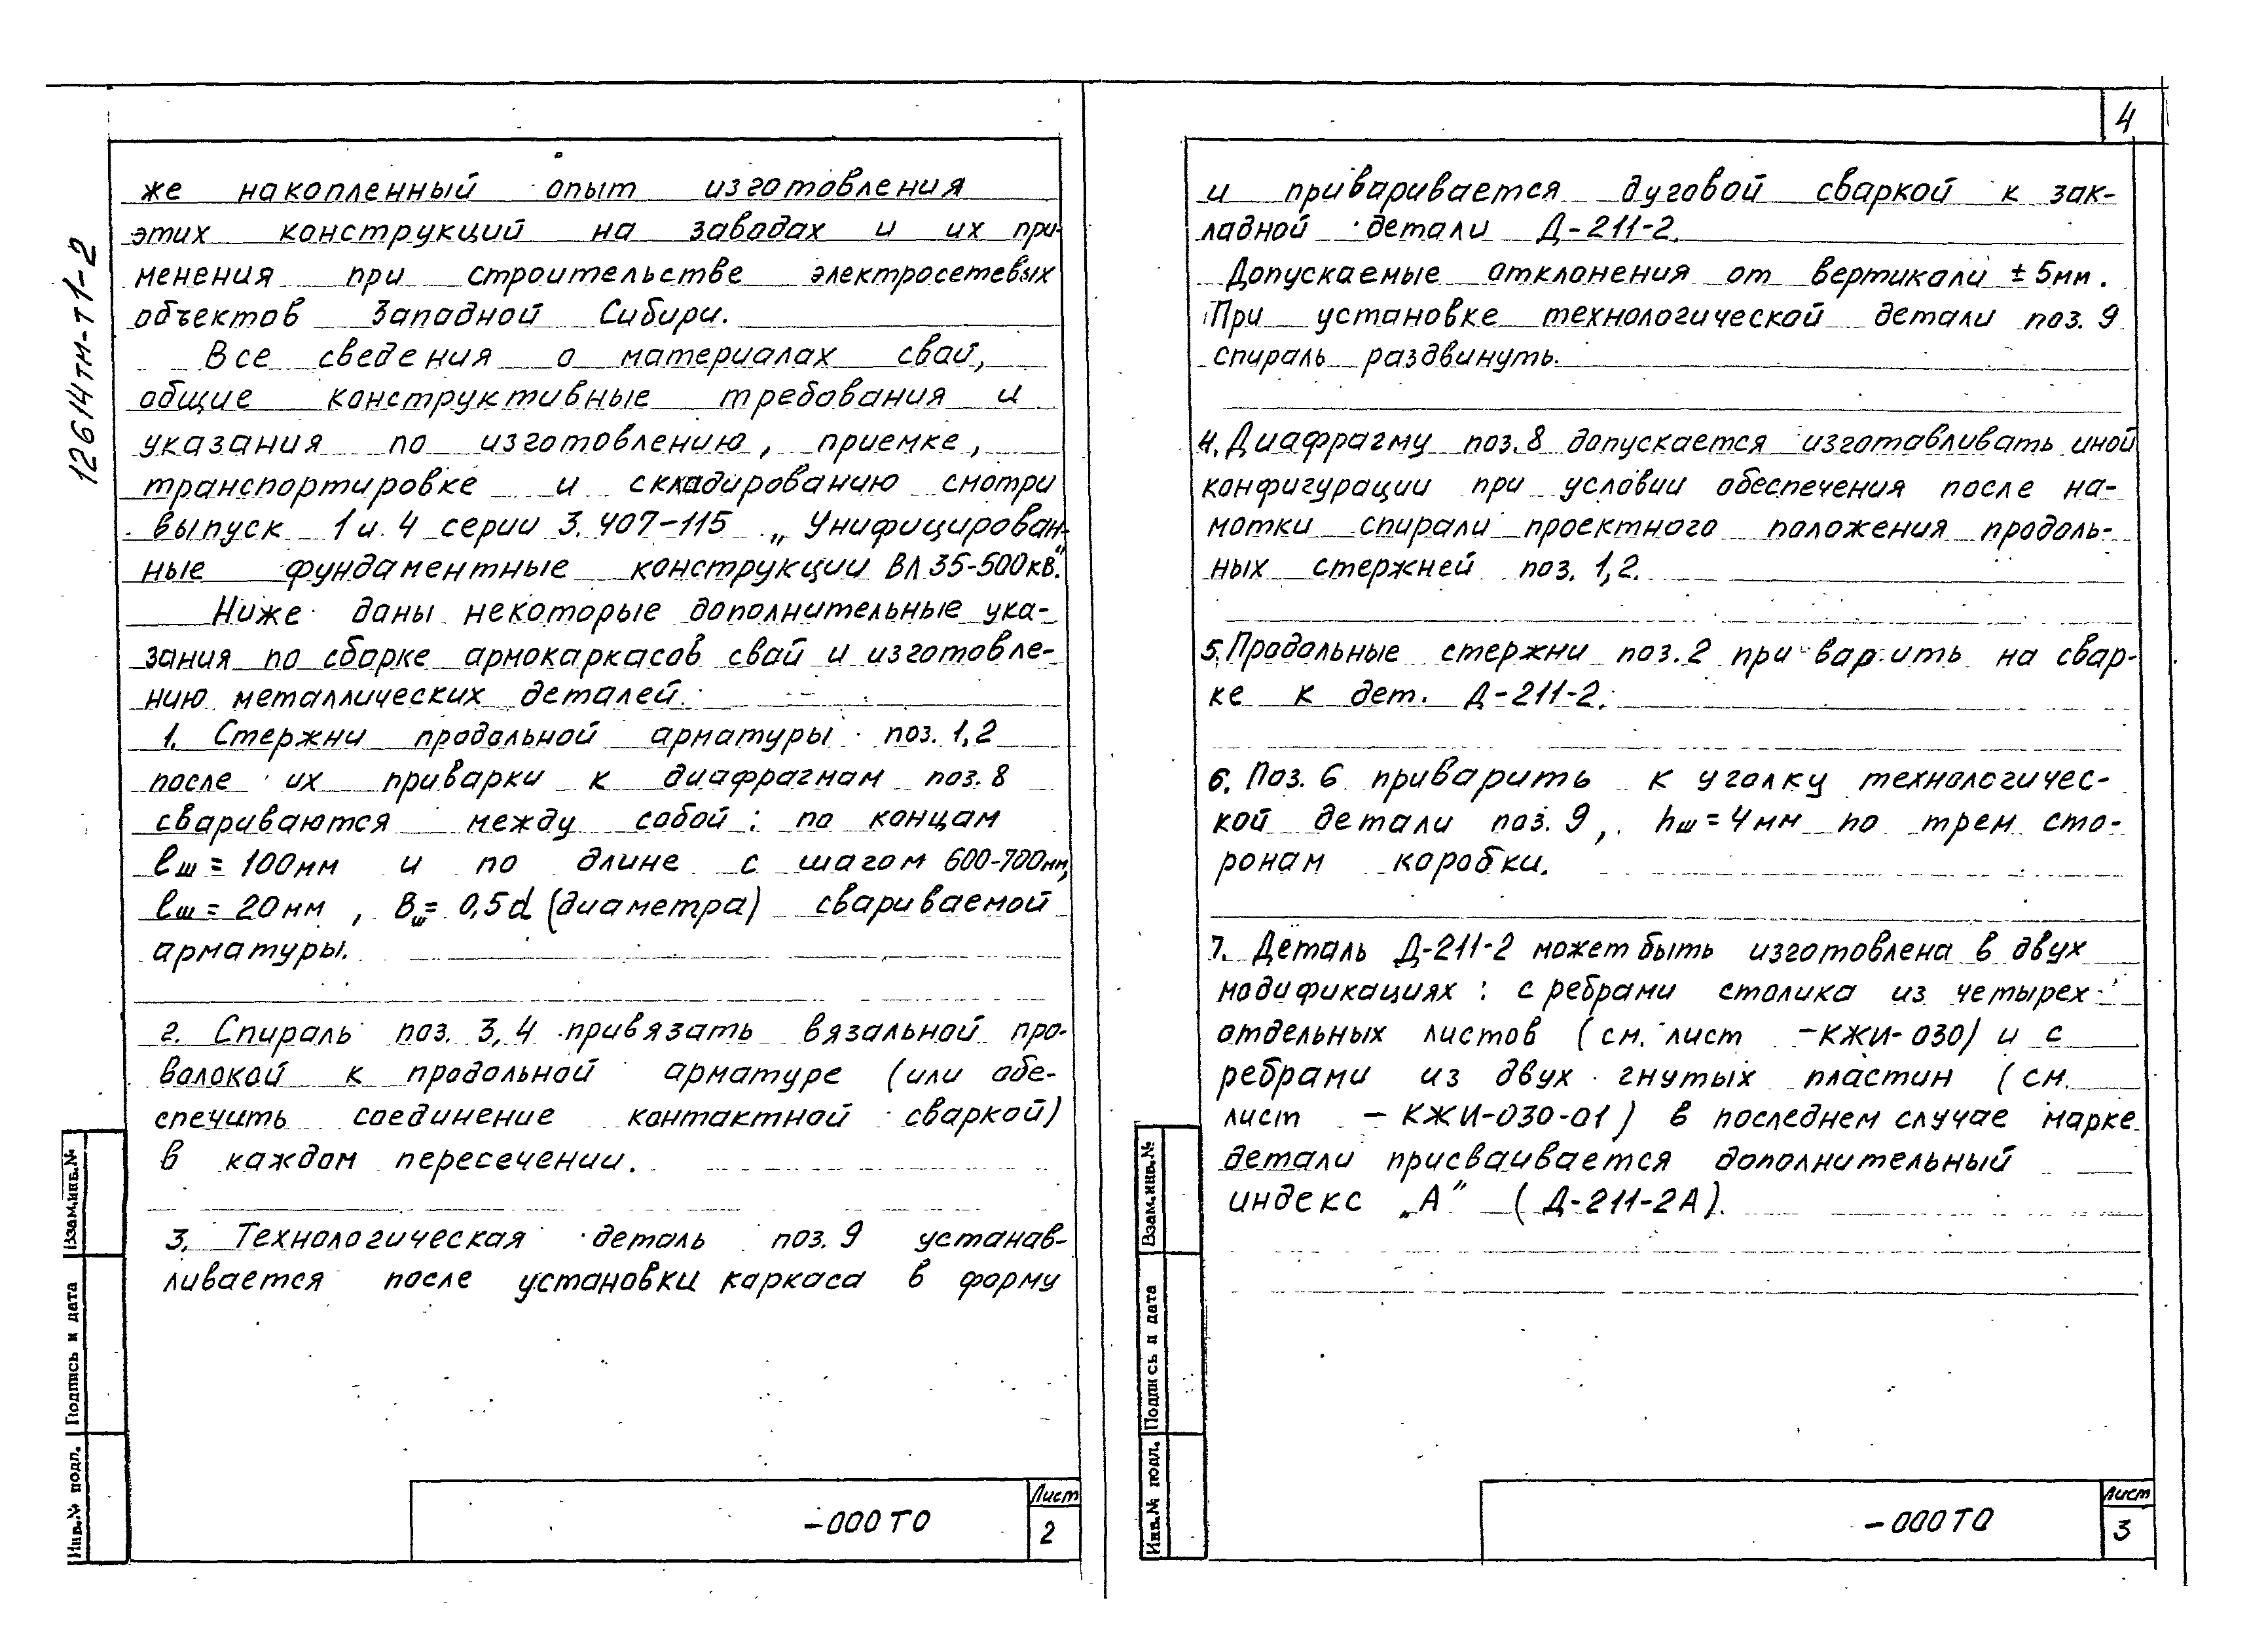 12614тм-т1-2
же накопленный опыт изготовления
этих конструкций на заводах и их при-
менения при строительстве электросетевых
объектов Западной Сибири.
Все сведения о материалах свай,
общие конструктивные требования и
указания по изготовлению, приемке,
транспортировке и складированию смотри
выпуск 1 и 4 серии 3.407-115 „Унифицирован-
ные фундаментные конструкции ВЛ 35-500кВ".
Ниже даны некоторые дополнительные ука-
зания по сборке армокаркасов свай и изготовле-
нию металлических деталей.
1. Стержни продольной арматуры поз. 1,2
после их приварки к диафрагмам поз. 8
свариваются между собой: по концам
ℓш = 100мм и по длине с шагом 600-700мм,
ℓш = 20мм, Вш= 0,5d (диаметра) свариваемой
арматуры.
2. Спираль поз. 3,4 привязать вязальной про-
волокой к продольной арматуре (или обе-
спечить соединение контактной сваркой)
в каждом пересечении.
3. Технологическая деталь поз. 9 устанав-
ливается после установки каркаса в форму
Взам.инв.№
Подпись и дата
Инв.№ подл.
-000 ТО
Лист
2
4
и приваривается дуговой сваркой к зак-
ладной детали Д-211-2.
Допускаемые отклонения от вертикали ± 5мм.
При установке технологической детали поз. 9
спираль раздвинуть.
4. Диафрагму поз. 8 допускается изготавливать иной
конфигурации при условии обеспечения после на-
мотки спирали проектного положения продоль-
ных стержней поз. 1,2.
5. Продольные стержни поз. 2 приварить на свар-
ке к дет. Д-211-2.
6. Поз. 6 приварить к уголку технологичес-
кой детали поз. 9, hш = 4мм по трем сто-
ронам коробки.
7. Деталь Д-211-2 может быть изготовлена в двух
модификациях: с ребрами столика из четырех
отдельных листов (см. лист -КЖИ-030) и с
ребрами из двух гнутых пластин (см.
лист -КЖИ-030-01) в последнем случае марке
детали присваивается дополнительный
индекс „А" (Д-211-2А).
Взам.инв.№
Подпись и дата
Инв.№ подл.
-000 ТО
Лист
3